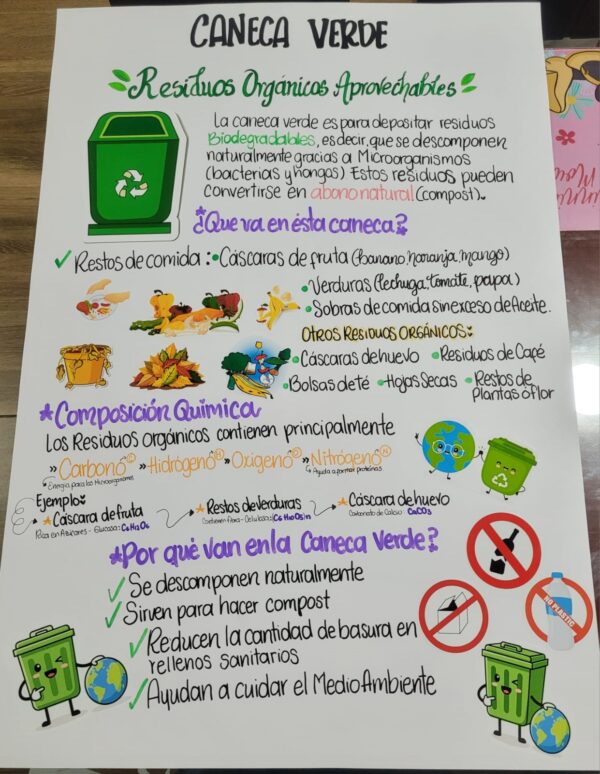 CANECA VERDE
Residuos Orgánicos Aprovechables
La caneca verde es para depositar residuos
Biodegradables, es decir, que se descomponen
naturalmente gracias a Microorganismos
(bacterias y hongos) Estos residuos, pueden
convertirse en abono natural (compost).
*¿Que va en ésta caneca?
✓ Restos de comida: •Cáscaras de fruta (banano, naranja, mango)
•Verduras (lechuga, tomate, papa)
•Sobras de comida sin exceso de Aceite.
OTROS RESIDUOS ORGÁNICOS:
•Cáscaras de huevo •Residuos de Café
•Bolsas de té •Hojas Secas •Restos de
Planta ó flor
*Composición Química
Los Residuos orgánicos contienen principalmente
»Carbono (C) »Hidrógeno (H) »Oxígeno (O) »Nitrógeno (N)
Energia para los Microorganismos
Ayuda a formar proteínas
Ejemplo
*Cáscara de fruta
Rica en Azúcares - Glucosa: C6H12O6
*Restos de Verduras
Celulosa: (C6H10O5)n
*Cáscara de huevo
Carbonato de Calcio: CaCO3
*Por qué van en la Caneca Verde?
✓ Se descomponen naturalmente
✓ Sirven para hacer compost
✓ Reducen la cantidad de basura en
rellenos sanitarios
✓ Ayudan a cuidar el Medio Ambiente
NO PLASTIC